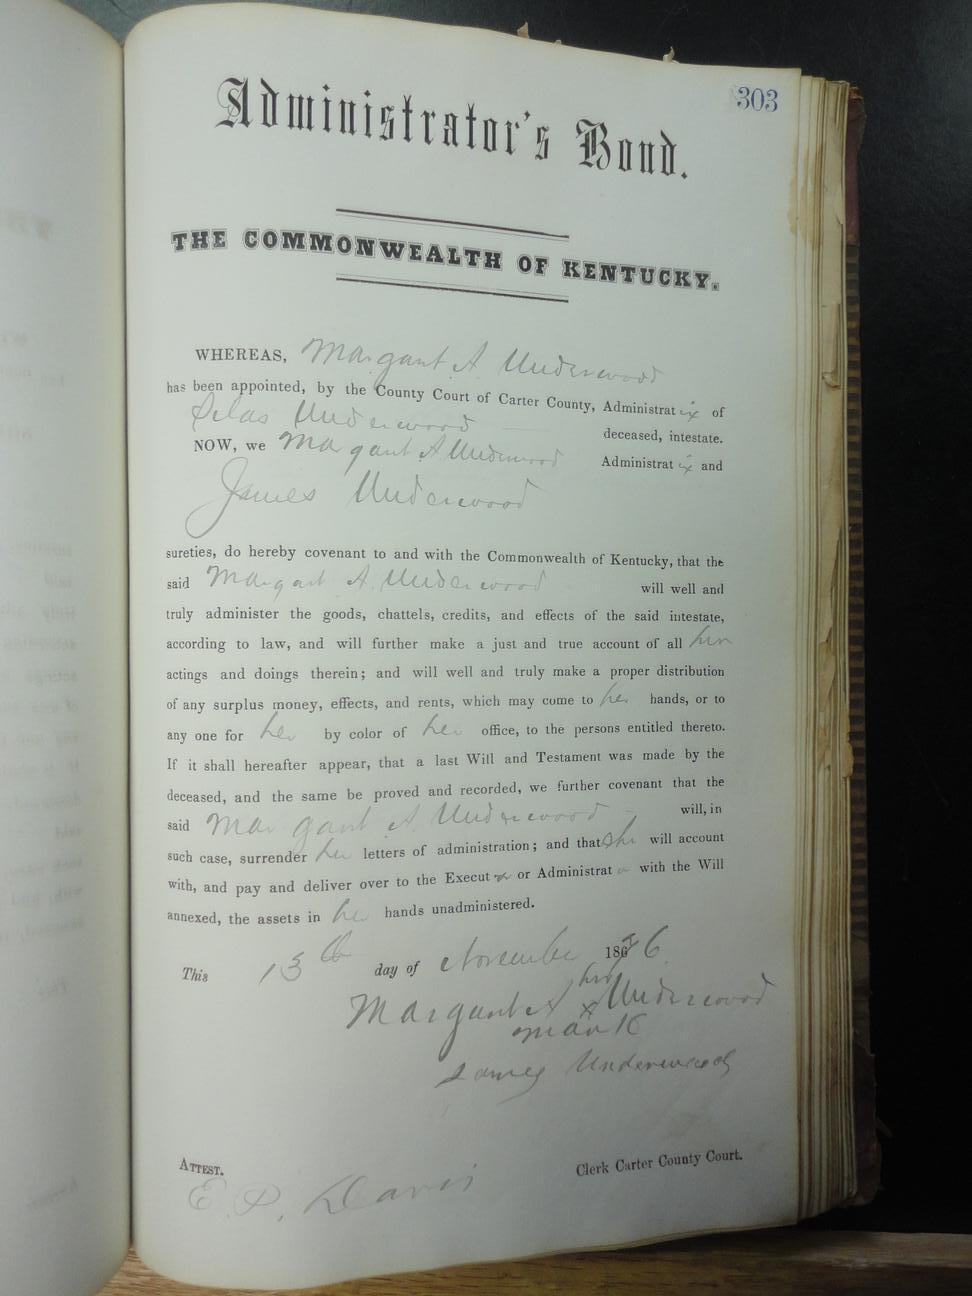 303
Administrator's Bond.
THE COMMONWEALTH OF KENTUCKY.
WHEREAS, Margaret A Underwood
has been appointed, by the County Court of Carter County, Administratix of
Silas Underwood deceased, intestate.
NOW, we Margaret A Underwood Administratix and
James Underwood
sureties, do hereby covenant to and with the Commonwealth of Kentucky, that the
said Margaret A. Underwood will well and
truly administer the goods, chattels, credits, and effects of the said intestate,
according to law, and will further make a just and true account of all her
actings and doings therein; and will well and truly make a proper distribution
of any surplus money, effects, and rents, which may come to her hands, or to
any one for her by color of her office, to the persons entitled thereto.
If it shall hereafter appear, that a last Will and Testament was made by the
deceased, and the same be proved and recorded, we further covenant that the
said Margaret A Underwood will, in
such case, surrender her letters of administration; and that she will account
with, and pay and deliver over to the Executor or Administrator with the Will
annexed, the assets in her hands unadministered.
This 13th day of November 1876.
Margaret A her x Underwood
mark
James Underwood
ATTEST. Clerk Carter County Court.
E. P. Davis